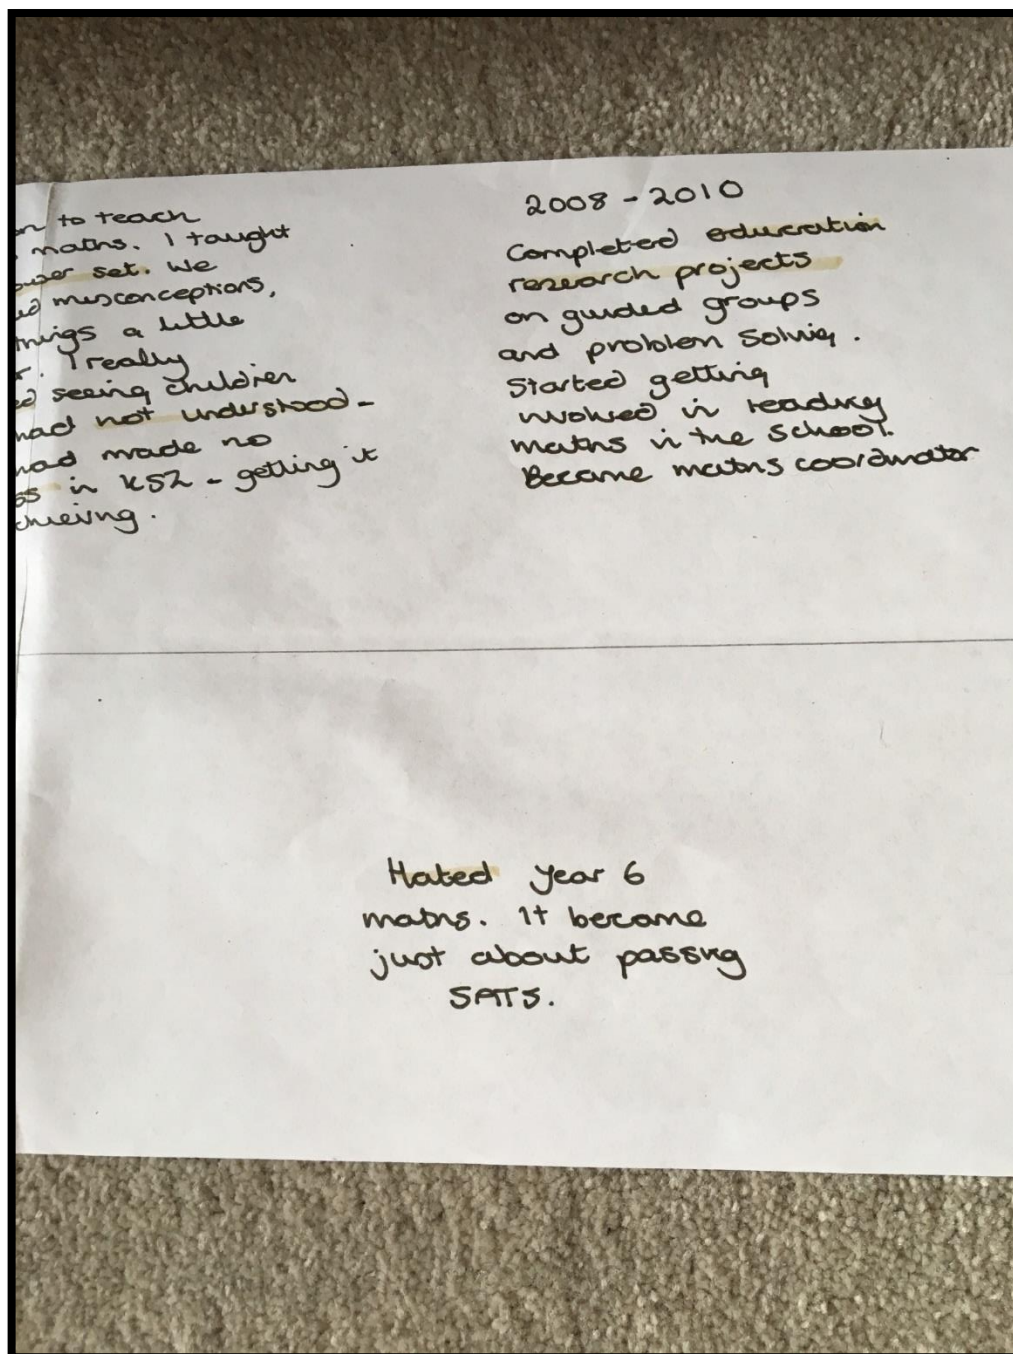 to teach
maths. I taught
set. We
misconceptions,
a little
I really
seeing children
had not understood -
had made no
in KS2 - getting it
2008 - 2010
Completed education
research projects
on guided groups
and problem solving.
Started getting
involved in leading
maths in the school.
Became maths coordinator
Hated Year 6
maths. It became
just about passing
SATS.